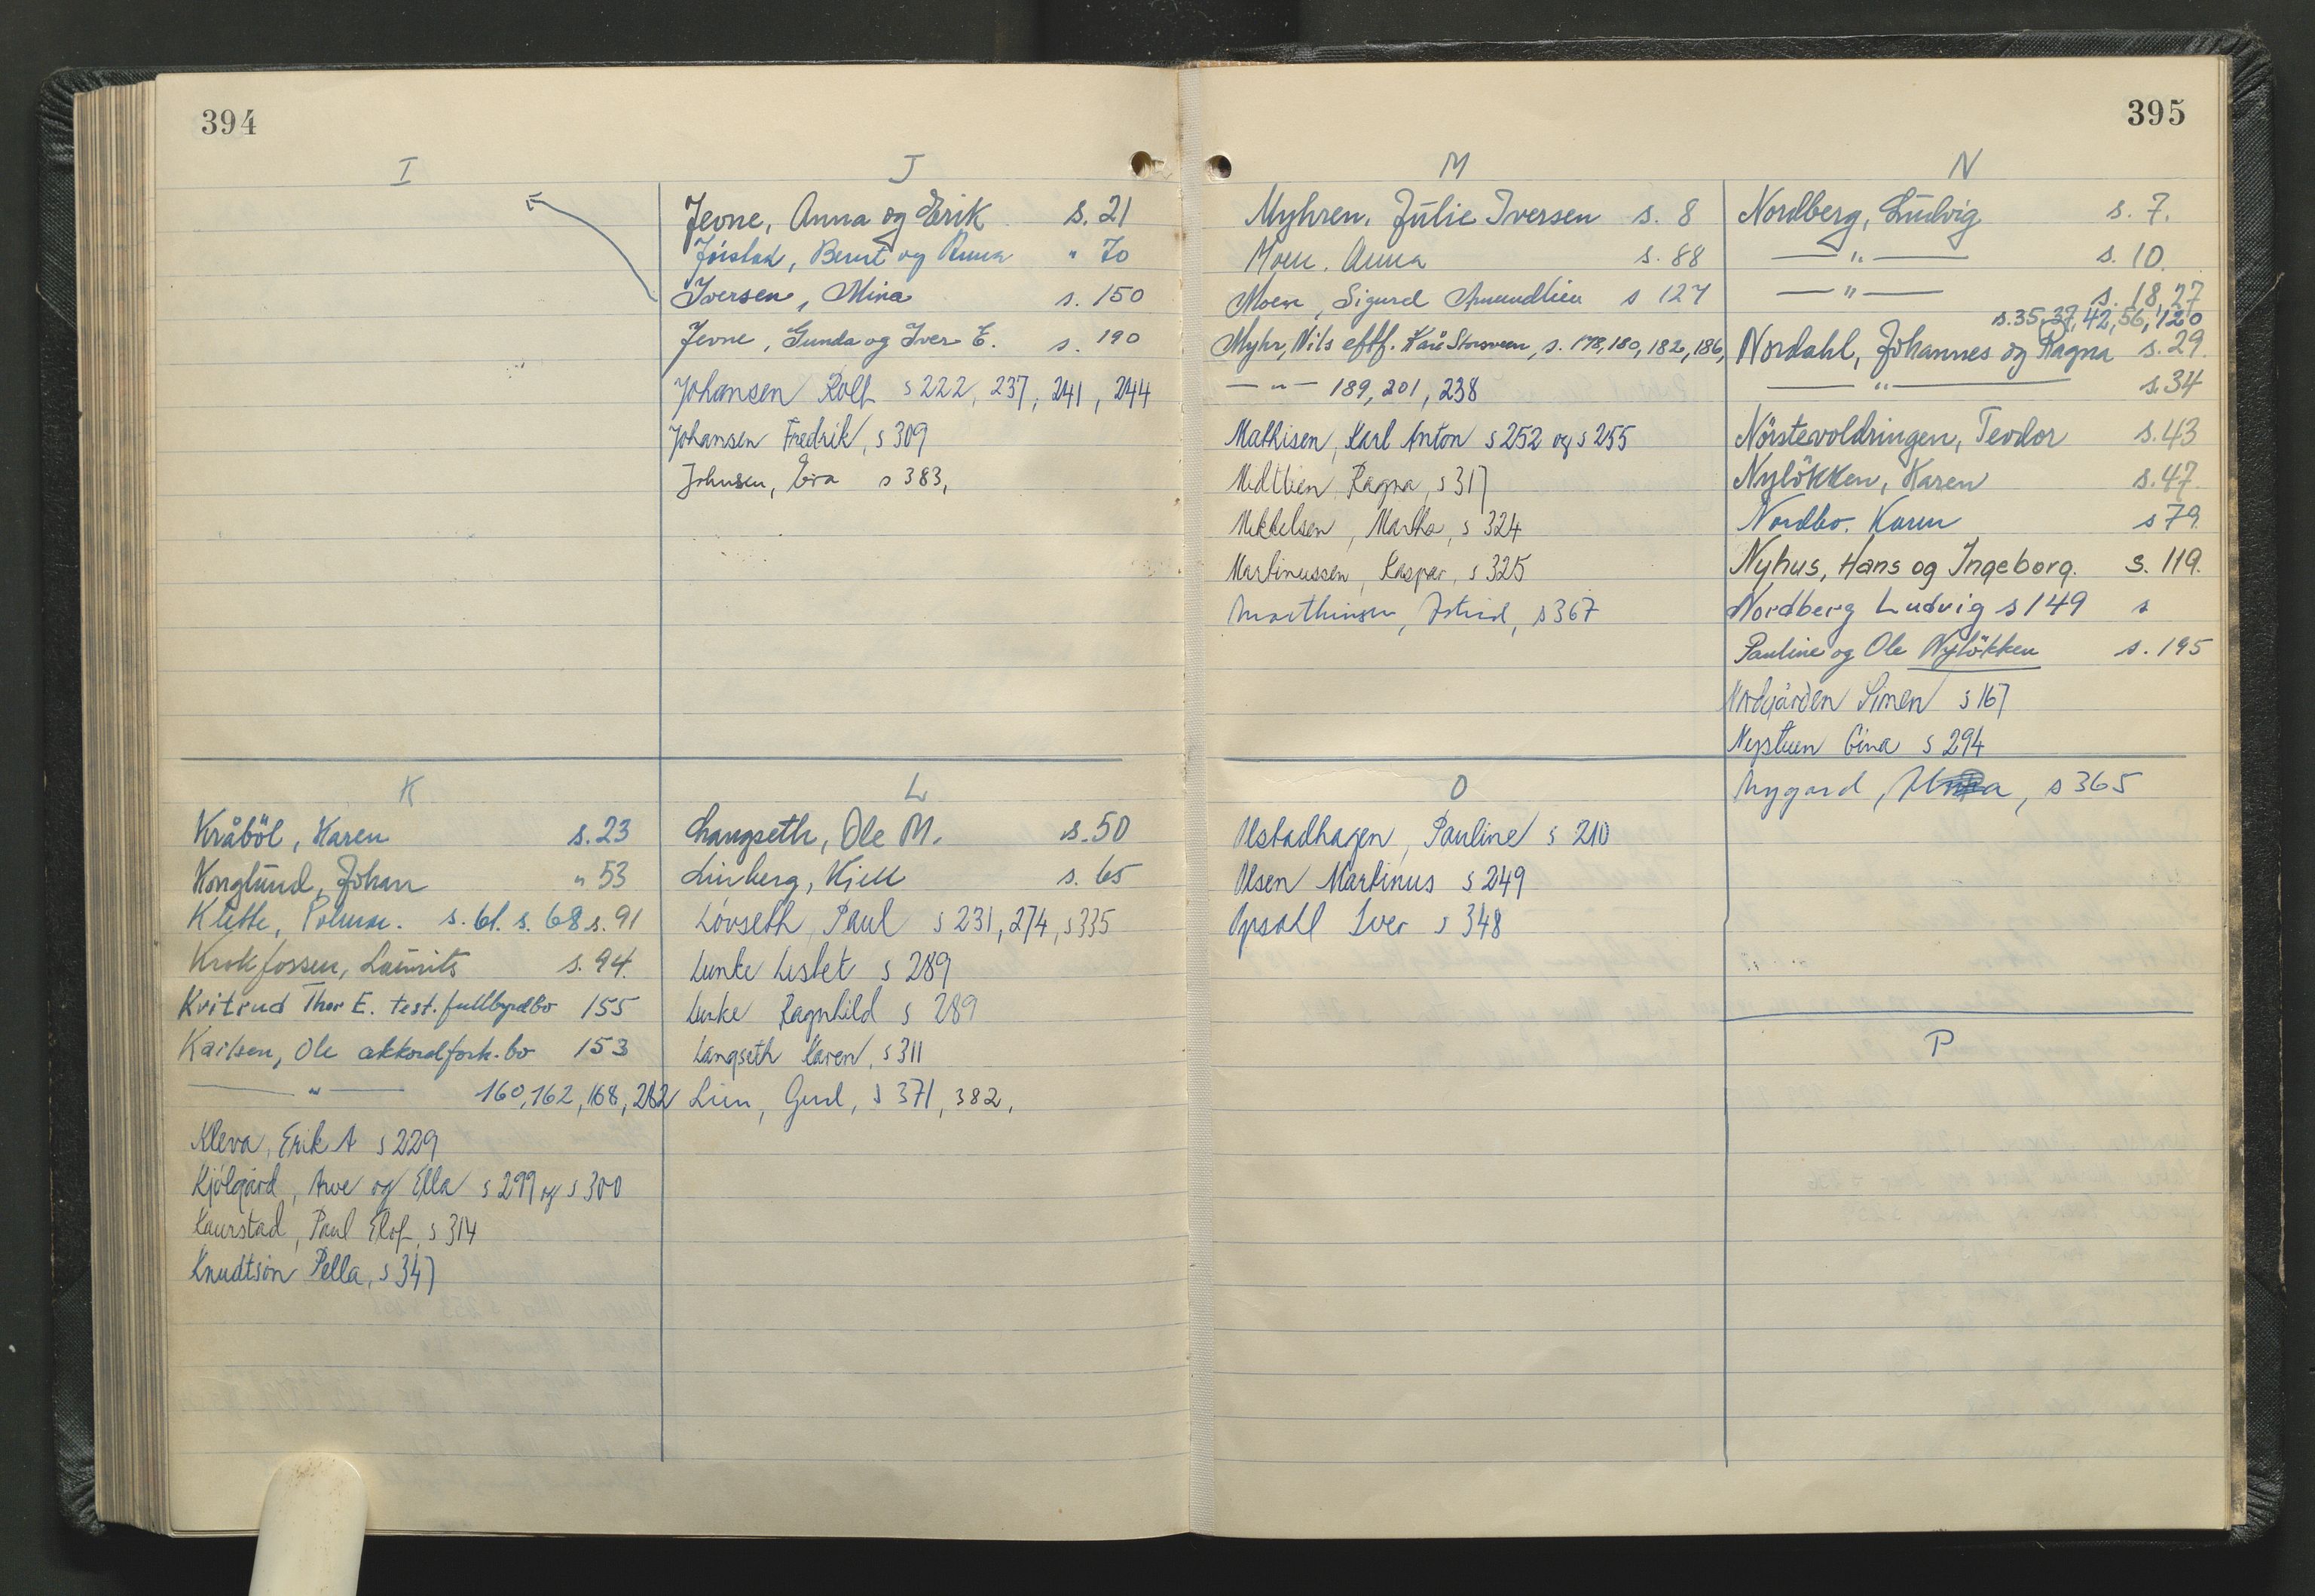 394
I
J
Jevne, Anna og Erik s. 21
Jörstad, Bernt og Anna " 70
Iversen, Mina s. 150
Jevne, Gunda og Iver E. s. 190
Johansen Rolf s 222, 237, 241, 244
Johansen Fredrik, s 309
Johnsen, Eva s 383,
K
Kråböl, Karen s. 23
Konglund, Johan " 53
Klette, s. 61. s. 68 s. 91
Krokfossen, Laurits s. 94.
Kvitrud Thor E. test.fullbyrdbo 155
Karlsen, Ole akkordforh.bo 153
— " — 160, 162, 168, 212
Kleva, Erik A s 229
Kjölgård, Arve og Ella s 299 og s 300
Kaurstad, Paul Elof, s 314
Knudtson Pella, s 347
L
Langseth, Ole M. s. 50
Linberg, Kjell s. 65
Lövseth, Paul s 231, 274, s 335
Lunke Lisbet s 289
Lunke Ragnhild s 289
Langseth Karen, s 311
Lien, Gerd, s 371, 382,
395
M
Myhren, Julie Iversen s. 8
Moen. Anna s. 88
Moen, Sigurd Amundlien s 127
Myhr, Nils eftf. Kåre Storsveen, s. 178, 180, 182, 186,
— " — 189, 201, 238
Mathisen, Karl Anton s 252 og s 255
Midtlien Ragna, s 317
Mikkelsen, Martha, s 324
Martinussen, Kaspar, s 325
Marthinsen, Astrid, s 367
N
Nordberg, Ludvig s. 7.
— " — s. 10.
— " — s. 18, 27
s. 35, 37, 42, 56, 120
Nordahl, Johannes og Ragna s. 29.
— " — s. 34
Nörstevoldringen, Teodor s. 43
Nylökken, Karen s. 47.
Nordbo. Karen s 79.
Nyhus, Hans og Ingeborg. s. 119.
Nordberg Ludvig s 149 s
Pauline og Ole Nylökken s. 195
Nordgården Simen s 167
Nystuen Gina s 294
Nygard, s 365
O
Olstadhagen, Pauline s 210
Olsen Martinus s 249
Opsahl Iver s 348
P